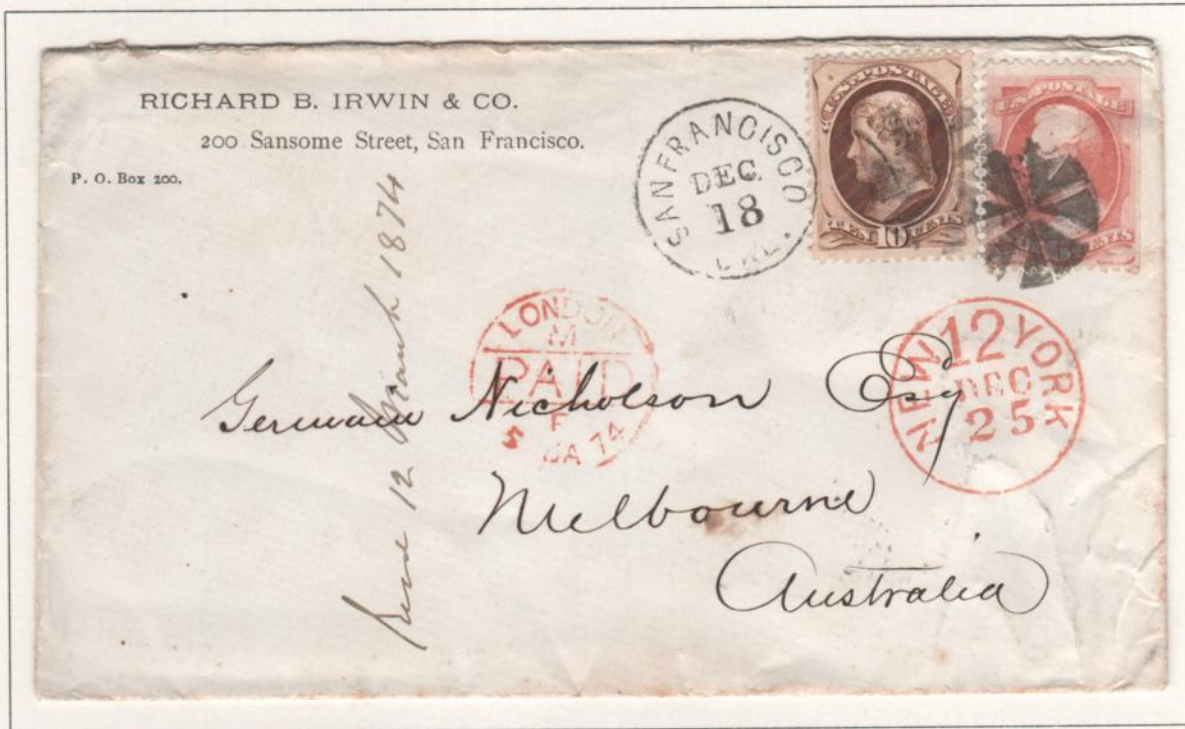 RICHARD B. IRWIN & CO.
200 Sansome Street, San Francisco.
P. O. Box 200.
SAN FRANCISCO
DEC.
18
CAL.
U.S. POSTAGE
TEN 10 CENTS
U.S. POSTAGE
CENTS
LONDON
M
PAID
F
5 JA 74
NEW YORK
12
DEC
25
Germain Nicholson Esqr
Melbourne
Australia
12 March 1874